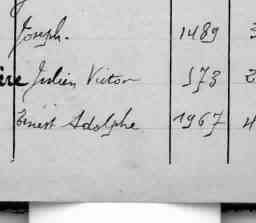 Joseph. 1489 3
ère Julien Victor 573 2
Ernest Adolphe 1967 4